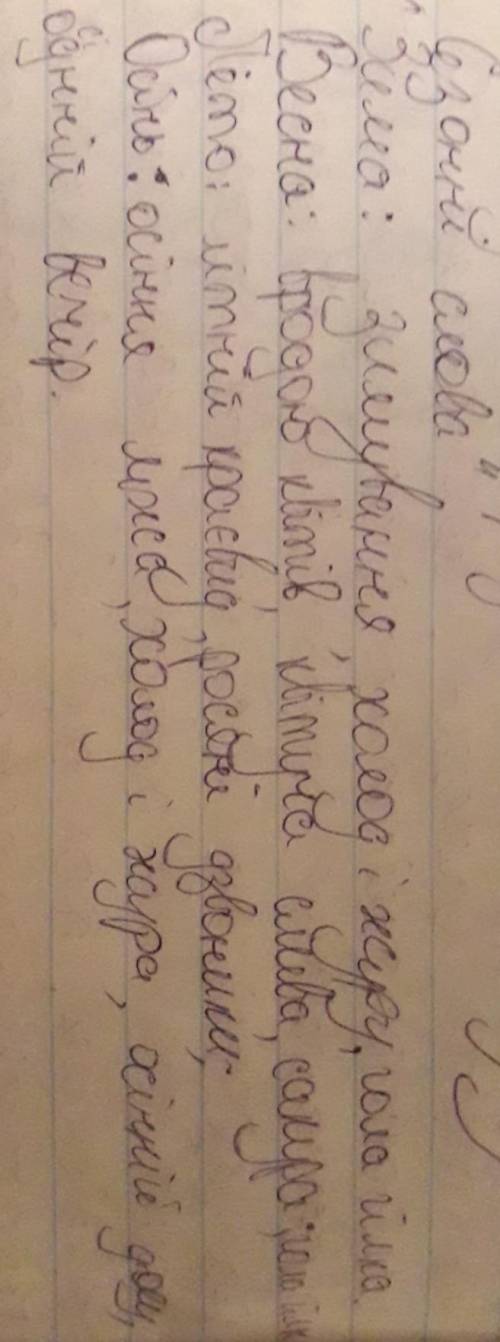 Сезонні слова
Зима: зимування холод і журу, гола гілка.
Весна: вродою квітів, квітуча слива, сакура,
Літо: літній краєвид, росяні дзвоники,
Осінь: осіння імжа, холод і жура, осінній дощ,
осінній вечір.